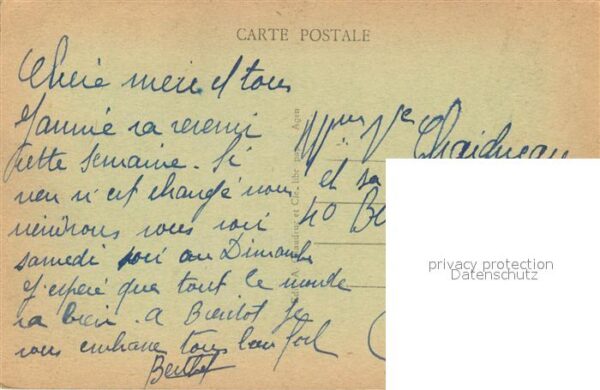 CARTE POSTALE
Chère mère et tous
va revenir
cette semaine. Si
rien n'est changé nous
viendrons vous voir
samedi soir ou Dimanche
J'espère que tout le monde
va bien. A Bientôt Je
vous embrasse tous bien fort
Mme Vve
et sa
40 B
privacy protection
Datenschutz